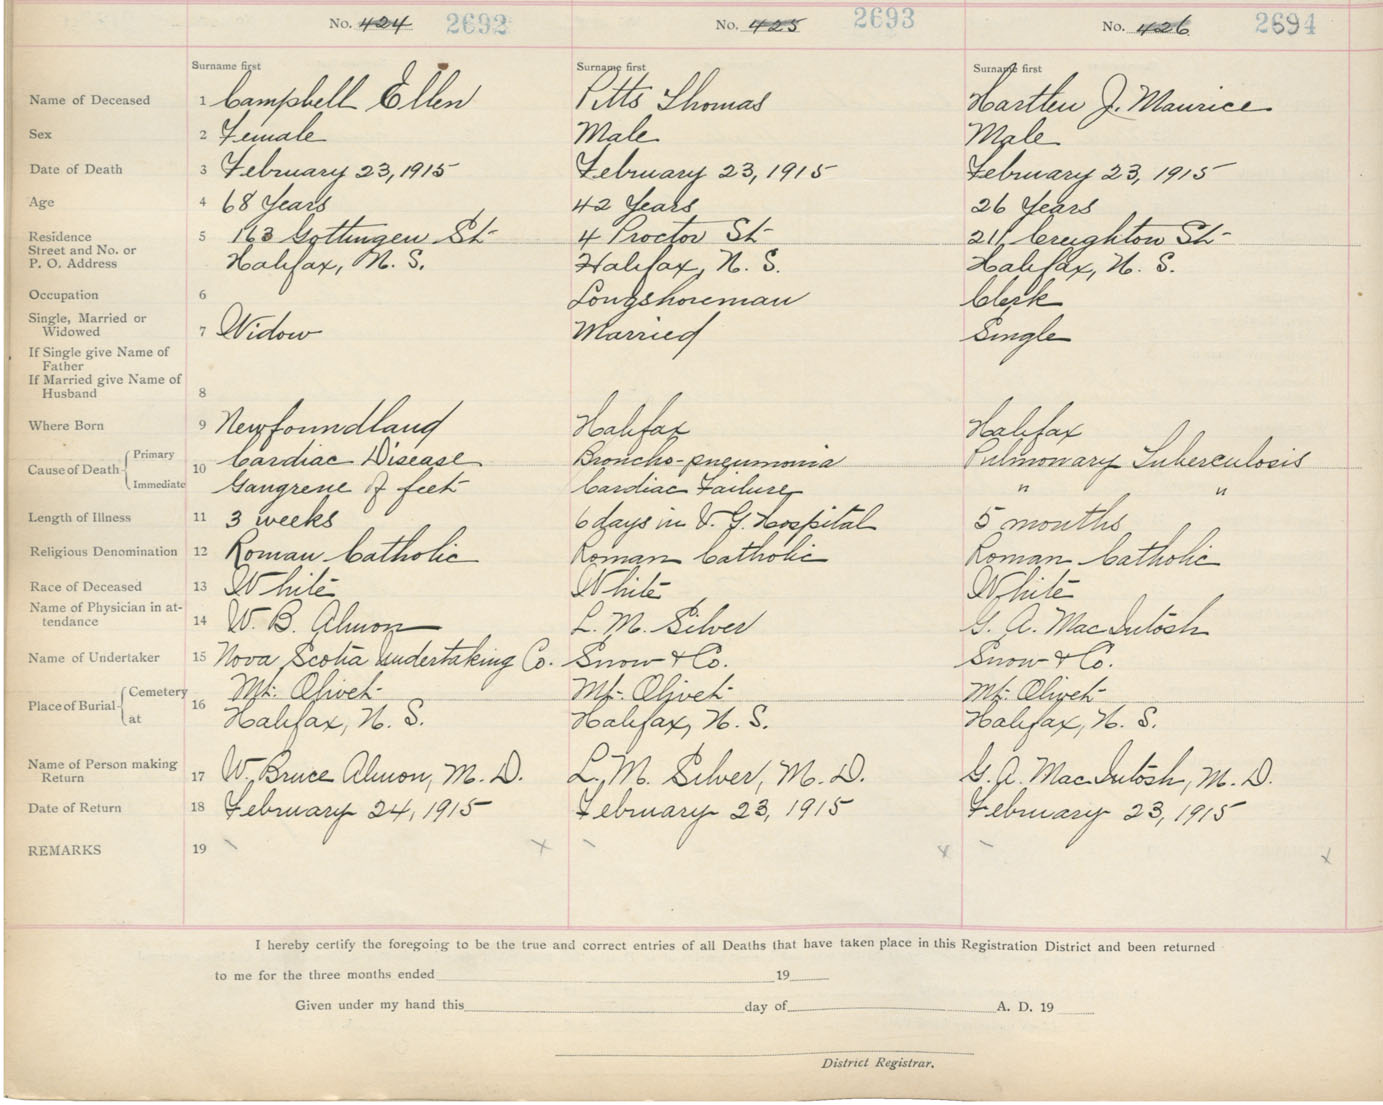 No. 424 2692 No. 425 2693 No. 426 2694
Surname first Surname first Surname first
Name of Deceased 1 Campbell Ellen Pitts Thomas Hartlen J. Maurice
Sex 2 Female Male Male
Date of Death 3 February 23, 1915 February 23, 1915 February 23, 1915
Age 4 68 Years 42 Years 26 Years
Residence 5 163 Gottingen St. 4 Proctor St. 211 Creighton St.
Street and No. or
P. O. Address Halifax, N. S. Halifax, N. S. Halifax, N. S.
Occupation 6 Longshoreman Clerk
Single, Married or
Widowed 7 Widow Married Single
If Single give Name of
Father
If Married give Name of
Husband 8
Where Born 9 Newfoundland Halifax Halifax
Cause of Death 10 Primary Cardiac Disease Broncho-pneumonia Pulmonary Tuberculosis
Immediate Gangrene of feet Cardiac Failure " "
Length of Illness 11 3 weeks 6 days in V. G. Hospital 5 months
Religious Denomination 12 Roman Catholic Roman Catholic Roman Catholic
Race of Deceased 13 White White White
Name of Physician in at-
tendance 14 W. B. Almon L. M. Silver G. A. MacIntosh
Name of Undertaker 15 Nova Scotia Undertaking Co. Snow & Co. Snow & Co.
Place of Burial 16 Cemetery Mt. Olivet Mt. Olivet Mt. Olivet
at Halifax, N. S. Halifax, N. S. Halifax, N. S.
Name of Person making
Return 17 W. Bruce Almon, M. D. L. M. Silver, M. D. G. A. MacIntosh, M. D.
Date of Return 18 February 24, 1915 February 23, 1915 February 23, 1915
REMARKS 19 x x x
I hereby certify the foregoing to be the true and correct entries of all Deaths that have taken place in this Registration District and been returned
to me for the three months ended 19
Given under my hand this day of A. D. 19
District Registrar.